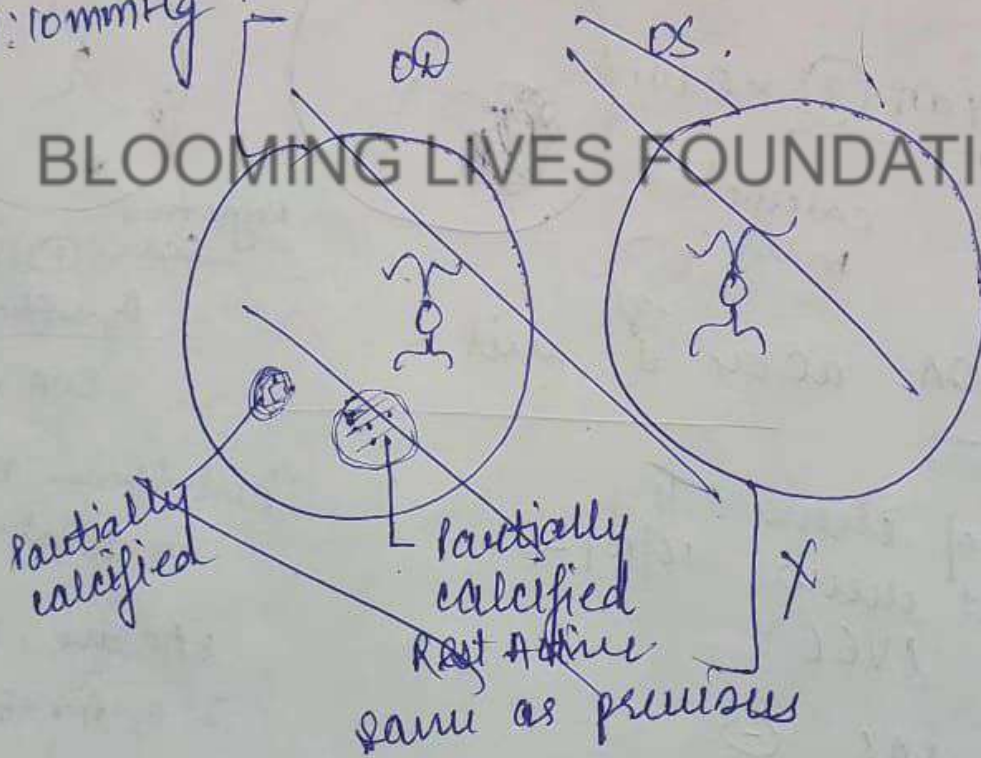 : 10mmHg
OD
OS.
BLOOMING LIVES FOUNDATI
Partially
calcified
Partially
calcified
Rest Active
same as previous
X